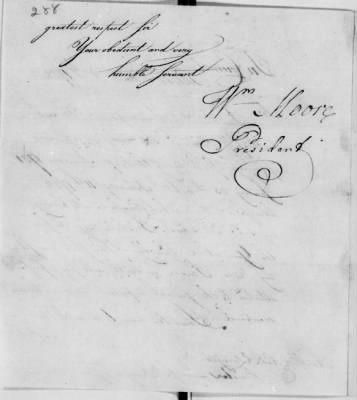 288
greatest respect Sir
Your obedient and very
humble Servant
Wm Moore
President